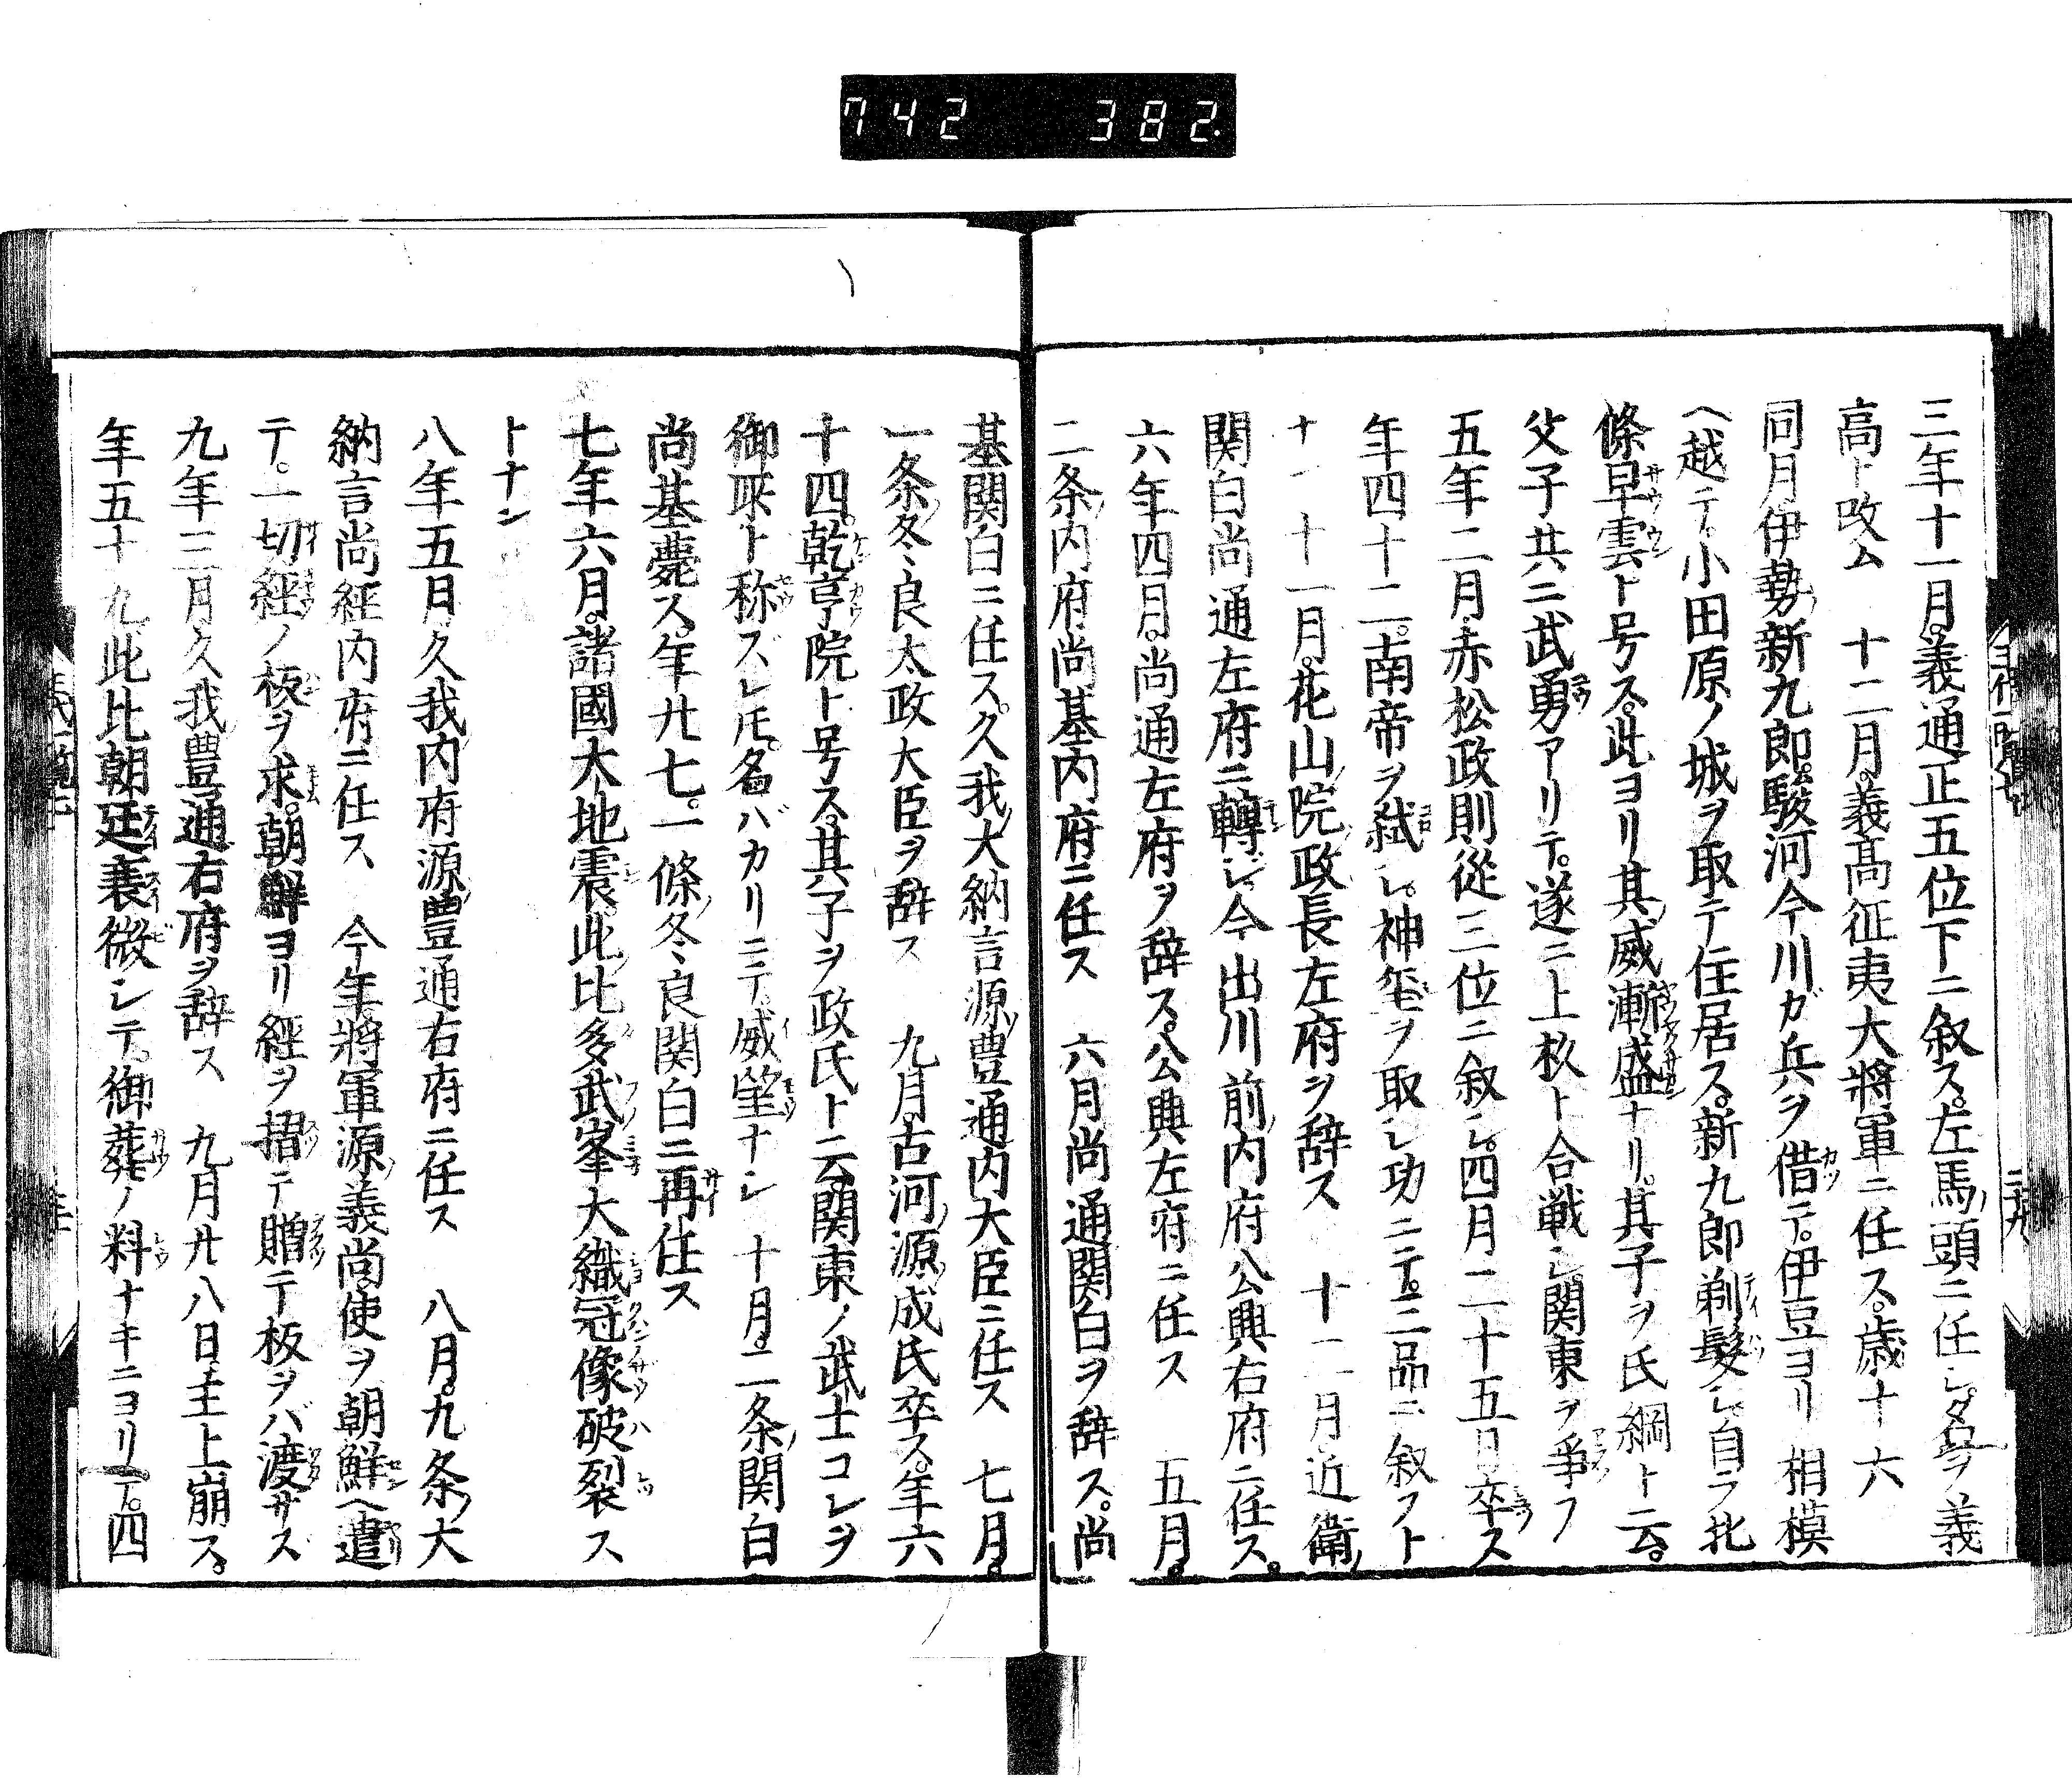 742 382.
三年十一月。義通正五位下ニ叙ス。左馬頭ニ任シ。名ヲ義
高ト改ム 十二月。義高征夷大將軍ニ任ス。歳十六
同月伊勢新九郎。駿河今川ガ兵ヲ借テ。伊豆ヨリ相模
ヘ越テ。小田原ノ城ヲ取テ住居ス。新九郎剃髮シ自ラ北
條早雲ト号ス。此ヨリ其威漸盛ナリ。其子ヲ氏綱ト云。
父子共ニ武勇アリテ。遂ニ上杦ト合戦シ。関東ヲ爭フ
五年二月。赤松政則従三位ニ叙シ。四月二十五日卒ス
年四十二。南帝ヲ弑シ。神玺ヲ取シ功ニテ。三品ニ叙フト
ナン 十一月。花山院政長左府ヲ辞ス 十二月近衛
関白尚通左府ニ轉シ。今出川前内府公興右府ニ任ス。
六年四月。尚通左府ヲ辞ス。公興左府ニ任ス 五月。
二条内府尚基内府ニ任ス 六月尚通関白ヲ辞ス。尚
基関白ニ任ス。久我大納言源豊通内大臣ニ任ス 七月。
一条冬良太政大臣ヲ辞ス 九月。古河源成氏卒ス。年六
十四。乾亨院ト号ス。其子ヲ政氏ト云。関東ノ武士コレヲ
御所ト称ズレ𪜈。名バカリニテ。威望ナシ 十月。二条関白
尚基薨ス。年廿七。一條冬良関白ニ再任ス
七年六月。諸國大地震。此比多武峯大織冠像破裂ス
トナン
八年五月。久我内府源豊通右府ニ任ス 八月。九条大
納言尚經内府ニ任ス 今年將軍源義尚。使ヲ朝鮮ヘ遣
テ。一切經ノ板ヲ求。朝鮮ヨリ經ヲ摺テ贈テ板ヲバ渡サス
九年三月久我豊通右府ヲ辞ス 九月廿八日主上崩ス。
年五十九此比朝廷衰微シテ。御葬ノ料ナキニヨリテ。四